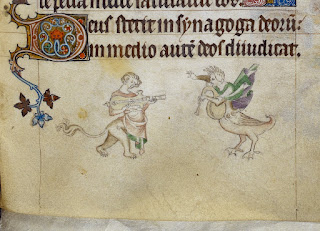 Deus stetit in synagoga deorū:
in medio autē deos diiudicat.